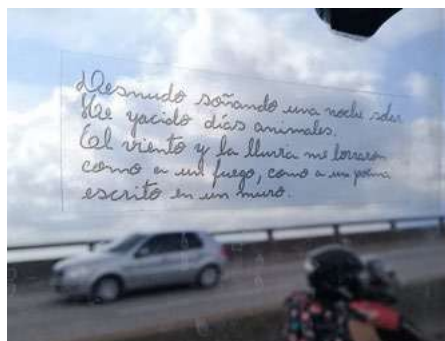 Desnudo soñando una noche solar
He yacido días animales.
El viento y la lluvia me borraron
como a un fuego, como a un poema
escrito en un muro.